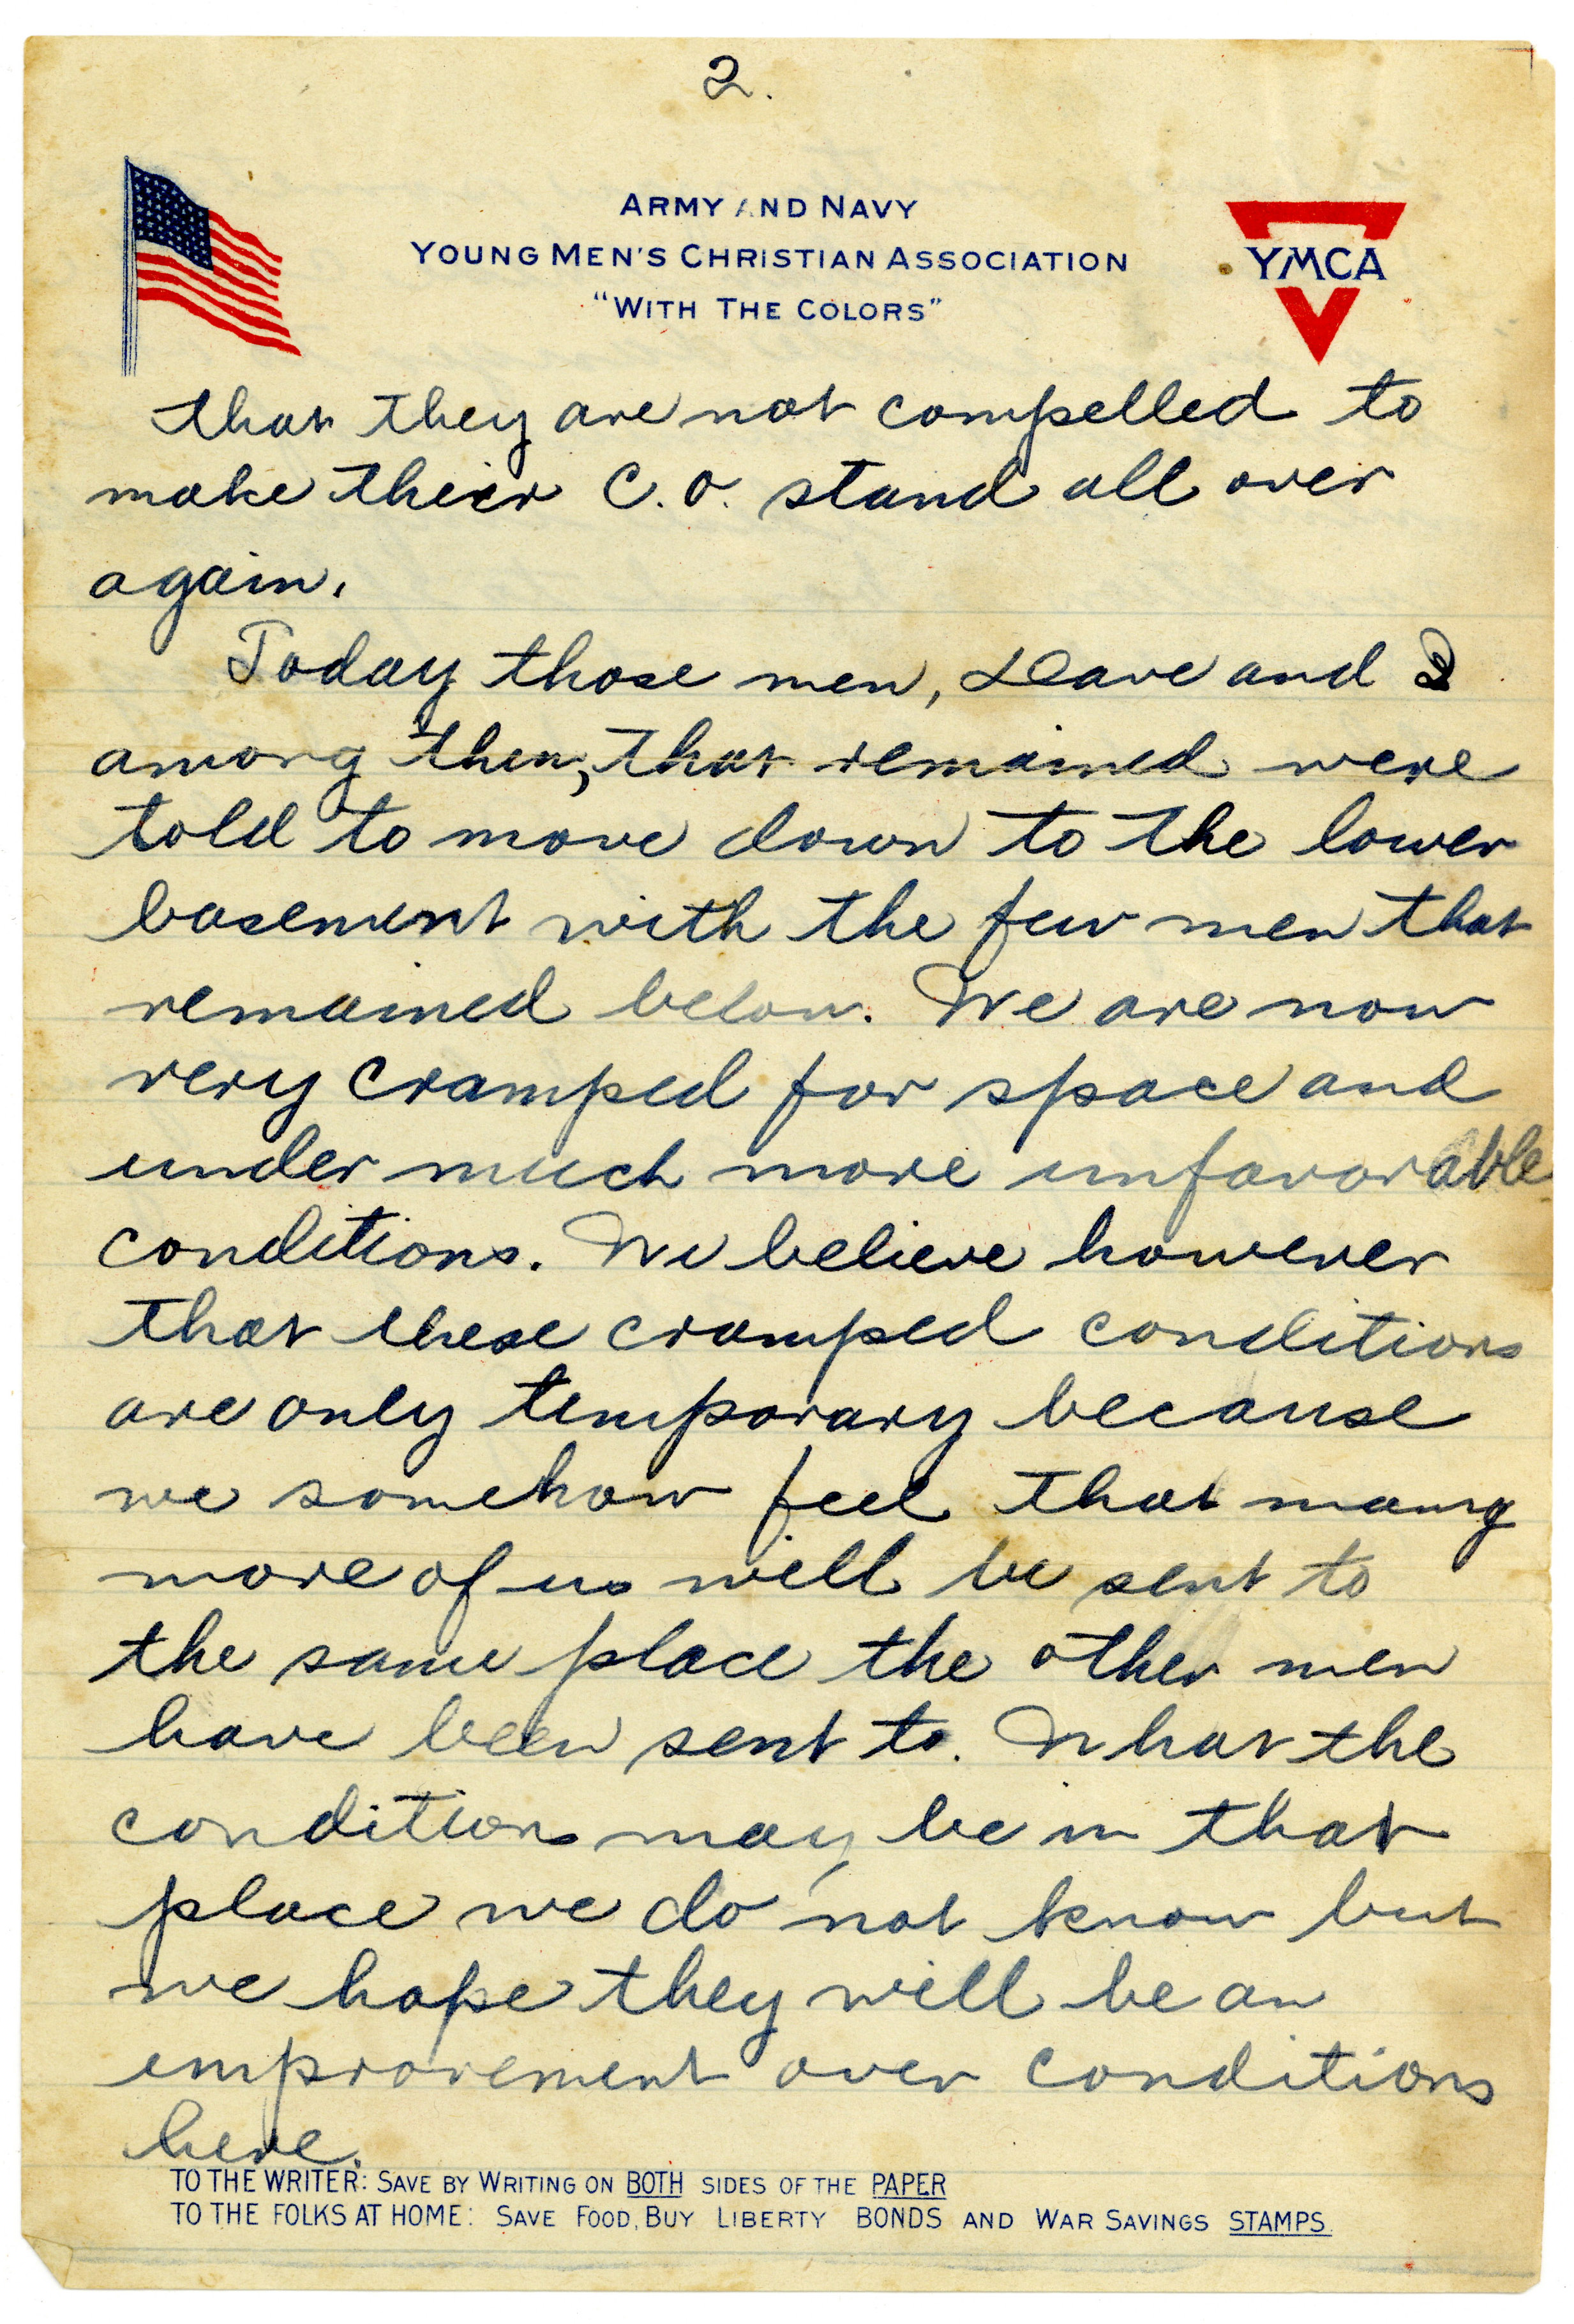 2.
ARMY AND NAVY
YOUNG MEN'S CHRISTIAN ASSOCIATION
"WITH THE COLORS"
YMCA
that they are not compelled to
make their C.O. stand all over
again.
Today those men, Dave and I
among them, that remained were
told to move down to the lower
basement with the few men that
remained below. We are now
very cramped for space and
under much more unfavorable
conditions. We believe however
that these cramped conditions
are only temporary because
we somehow feel that many
more of us will be sent to
the same place the other men
have been sent to. What the
conditions may be in that
place we do not know but
we hope they will be an
improvement over conditions
here.
TO THE WRITER: SAVE BY WRITING ON BOTH SIDES OF THE PAPER
TO THE FOLKS AT HOME: SAVE FOOD, BUY LIBERTY BONDS AND WAR SAVINGS STAMPS